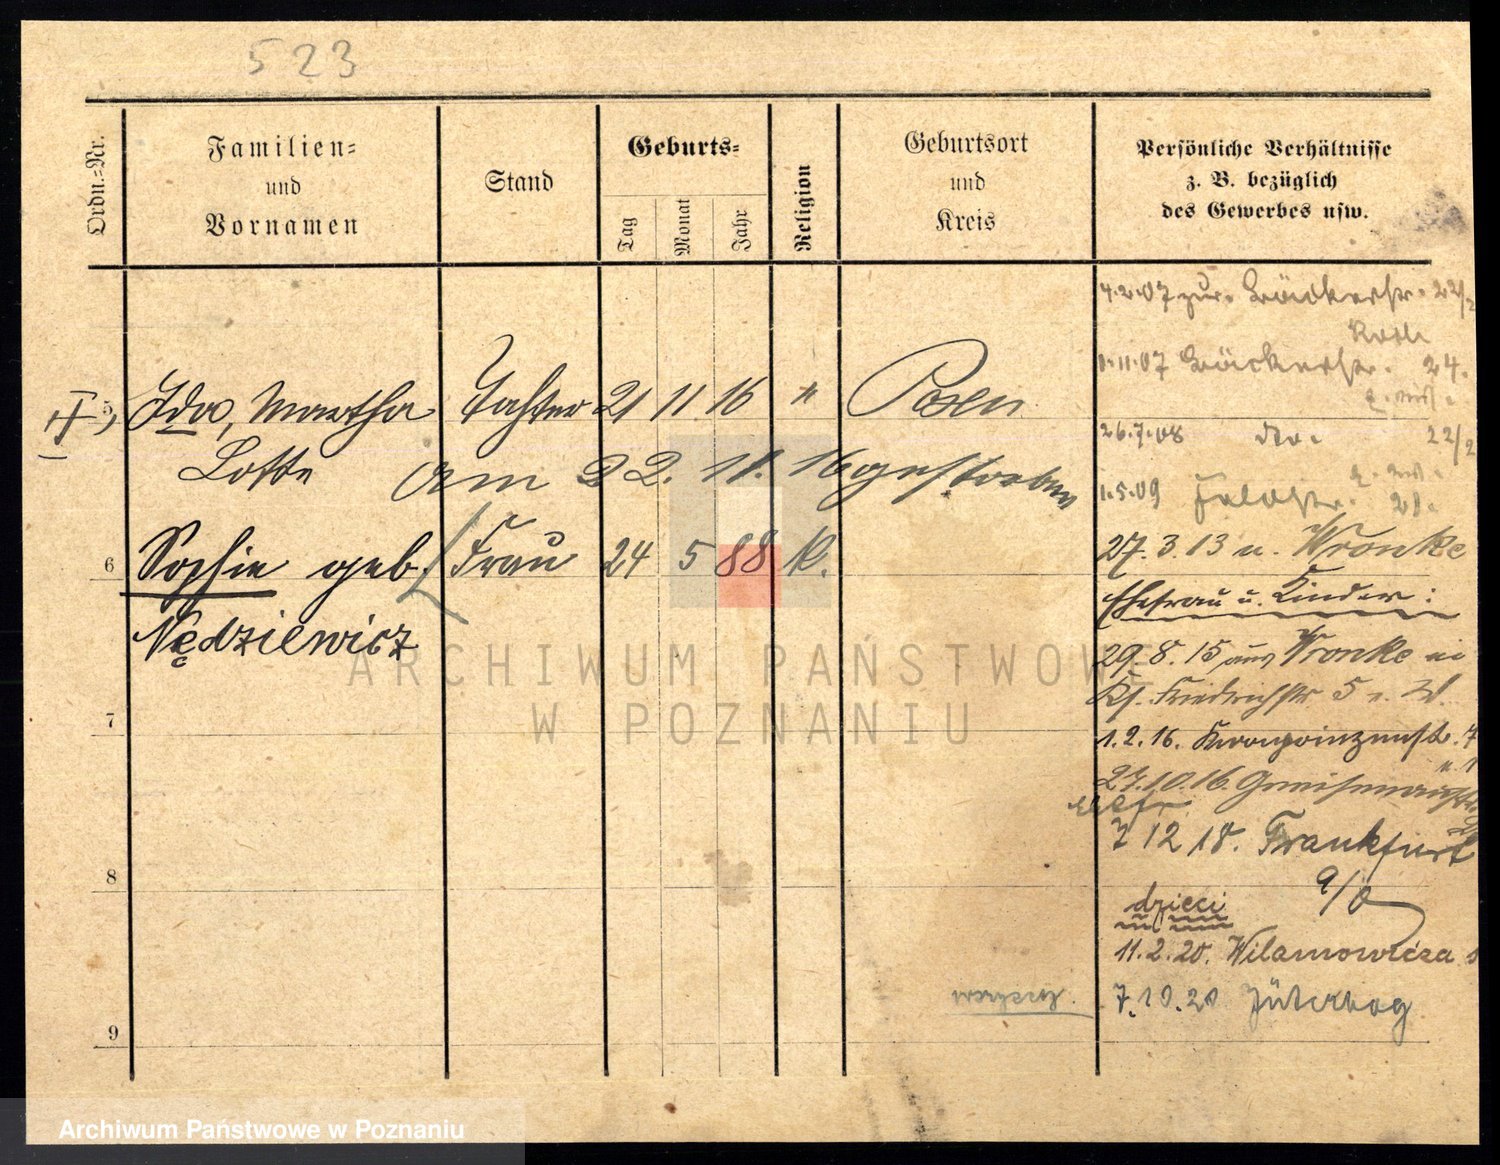 523
Ordn.-Nr.
Familien-
und
Vornamen
Stand
Geburts-
Tag
Monat
Jahr
Religion
Geburtsort
und
Kreis
Persönliche Verhältnisse
z. B. bezüglich
des Gewerbes usw.
4.2.07 zur. Bäckerstr. 22/2
1.11.07 Bäckerstr. 24.
5) Ida, Martha Tochter 21 11 16 " Posen
Lotte am 22. 11. 16 gestorben
26.7.08 dto. 22/2
1.5.09 Feldstr. 21.
6 Sophie geb. Frau 24 5 88 k.
Nędziewicz
27.3.13 n. Wronke
Ehefrau u. Kinder:
29.8.15 aus Wronke
Friedrichstr 5
7
1.2.16. Kronprinzenstr.
27.10.16. Gneisenaustr.
7 12 18. Frankfurt
a/O
8
dzieci
11.2.20. Wilamowicza
wszyscy. 7.10.20 Jüterbog
9
ARCHIWUM PAŃSTWOWE
W POZNANIU
Archiwum Państwowe w Poznaniu